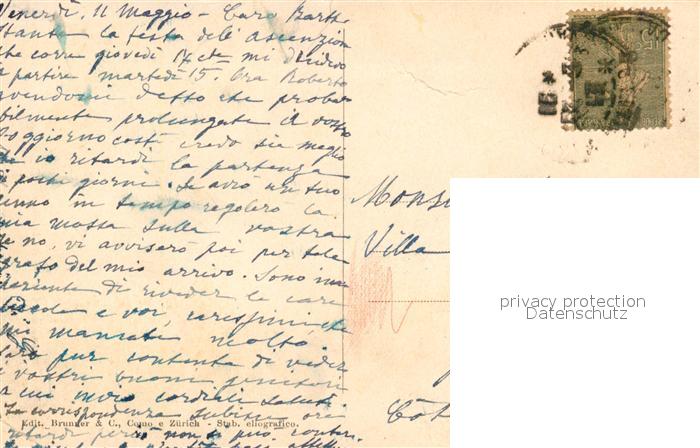 Venerdì, 11 Maggio - Caro Barth
stante la festa dell' Ascenzion
che corre giovedì 17 cte mi decidevo
a partire martedì 15. Ora Roberto
avendomi detto che proba-
bilmente prolungate il vostro
soggiorno costì credo sia meglio
che io ritardi la partenza
di pochi giorni. Se avrò un tuo
cenno in tempo regolerò la
mia mossa sulla vostra
se no, vi avviserò poi per tele
grafo del mio arrivo. Sono im
paziente di riveder le care
e voi, carissimi che
mi mancate molto.
Sarò pur contenta di veder
i vostri buoni genitori
a cui invio cordiali saluti
La corrispondenza subisce ora
ritardi perciò non si può contar
Edit. Brunner & C., Como e Zürich - Stab. eliografico.
Villa
privacy protection
Datenschutz